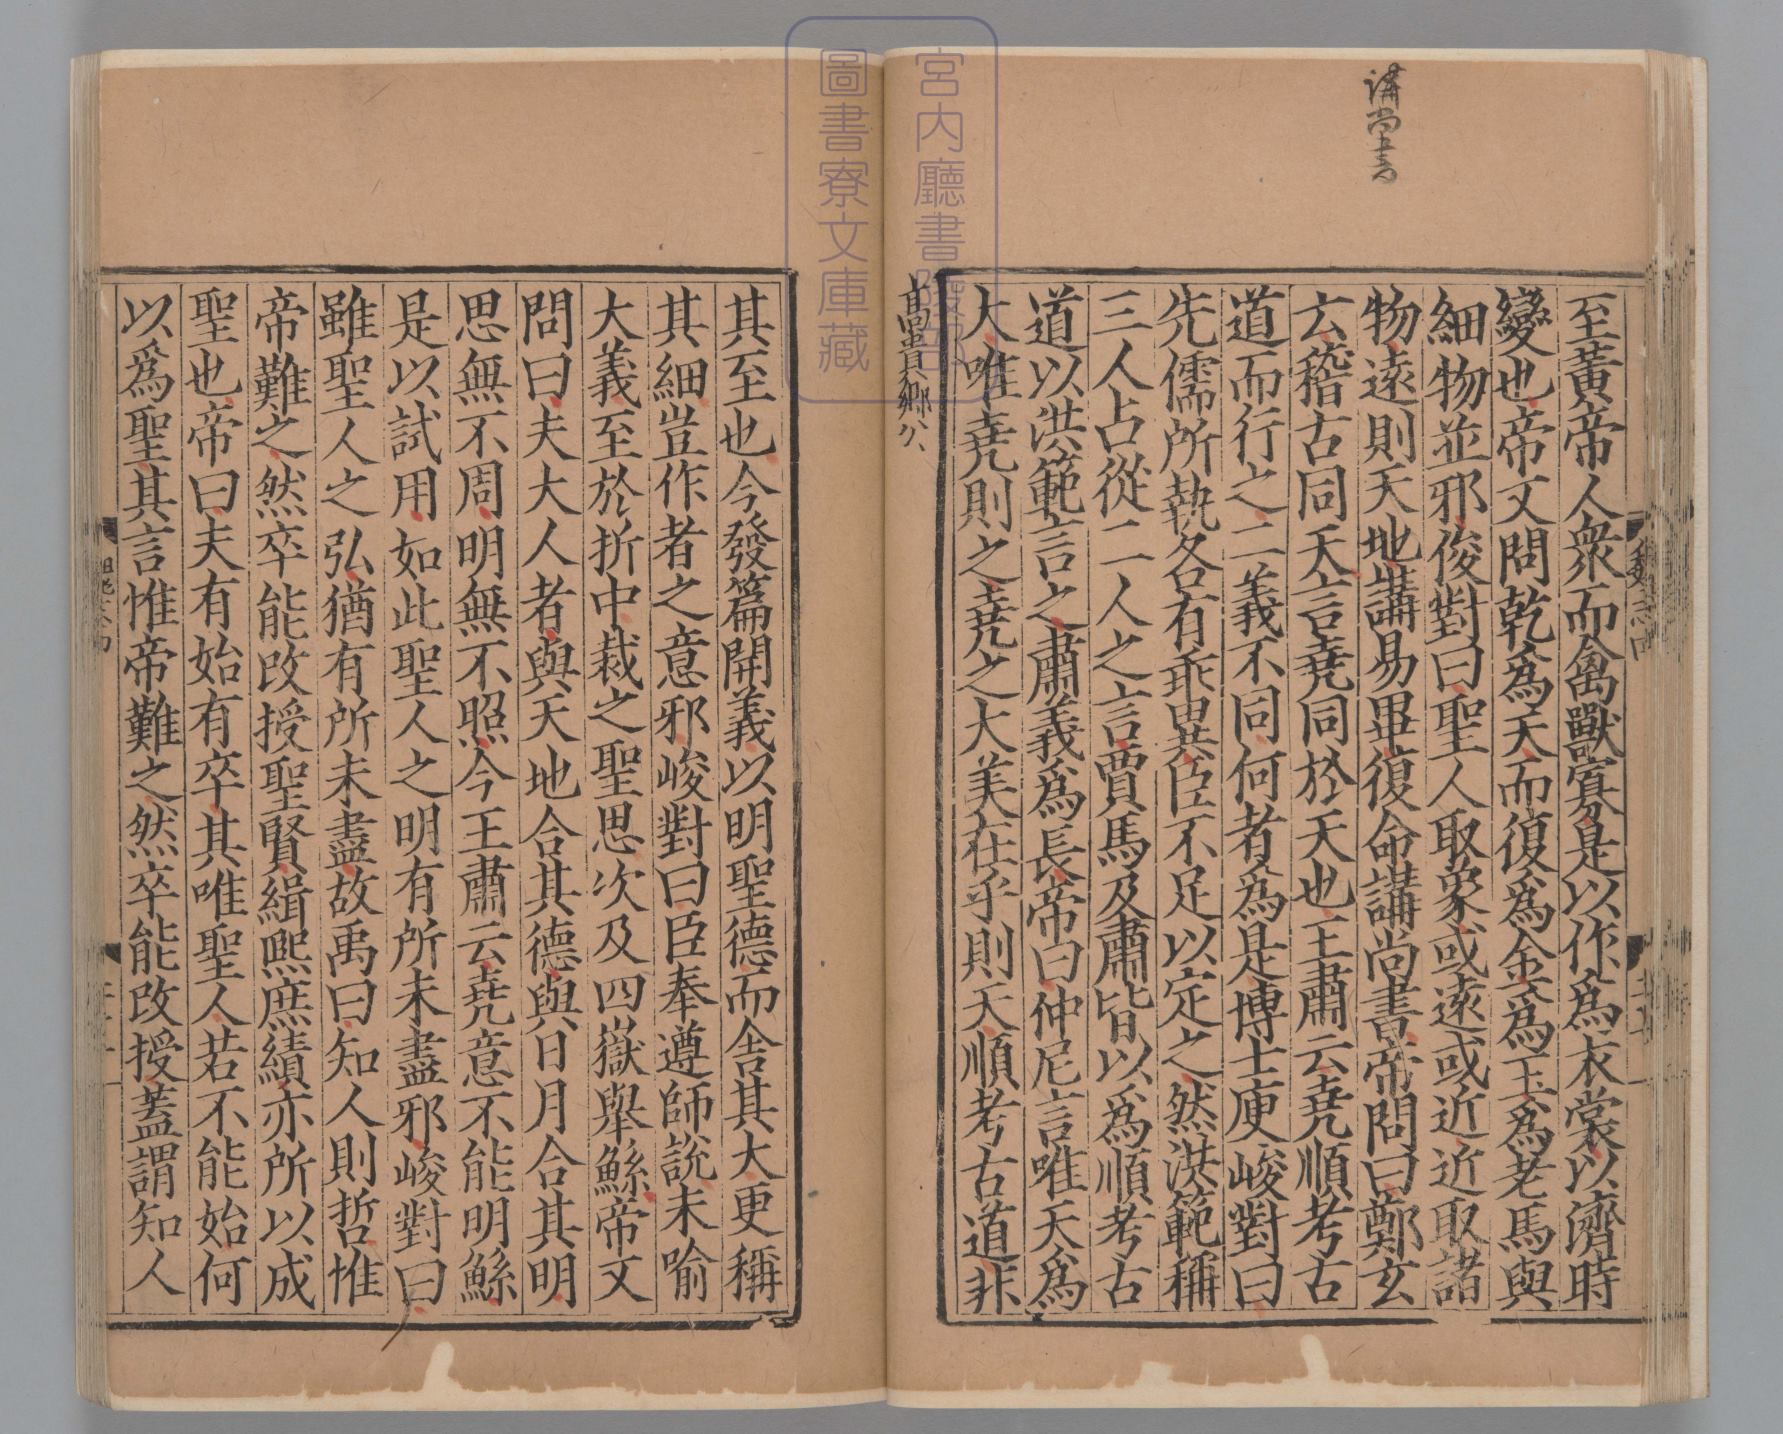 講尚書
至黃帝人衆而禽獸寡是以作爲衣裳以濟時
變也帝又問乾爲天而復爲金爲玉爲老馬與
細物並邪俊對曰聖人取象或遠或近近取諸
物遠則天地講易畢復命講尚書帝問曰鄭玄
云稽古同天言堯同於天也王肅云堯順考古
道而行之二義不同何者爲是博士庾峻對曰
先儒所執各有乖異臣不足以定之然洪範稱
三人占從二人之言賈馬及肅皆以爲順考古
道以洪範言之肅義爲長帝曰仲尼言唯天爲
大唯堯則之堯之大美在乎則天順考古道非
高貴鄉公
其至也今發篇開義以明聖德而舍其大更稱
其細豈作者之意邪峻對曰臣奉遵師說未喻
大義至於折中裁之聖思次及四嶽舉鯀帝又
問曰夫大人者與天地合其德與日月合其明
思無不周明無不照今王肅云堯意不能明鯀
是以試用如此聖人之明有所未盡邪峻對曰
雖聖人之弘猶有所未盡故禹曰知人則哲惟
帝難之然卒能改授聖賢緝熙庶績亦所以成
聖也帝曰夫有始有卒其唯聖人若不能始何
以爲聖其言惟帝難之然卒能改授蓋謂知人
宮内廳書陵部
圖書寮文庫藏
魏志四